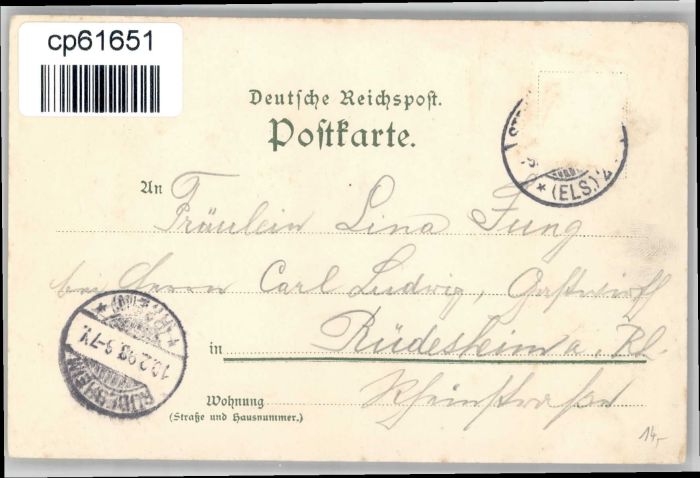 cp61651
Deutsche Reichspost.
Postkarte.
(ELS.)
An Fräulein Lina Jung
bei Herrn Carl Ludwig, Gastwirth
in Rüdesheim a. Rh.
Wohnung Rheinstrasse
(Straße und Hausnummer.)
14,-